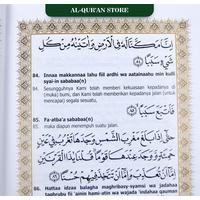 AL-QUR'AN STORE
إِنَّا مَكَّنَّا لَهُ فِي الْأَرْضِ وَآتَيْنَاهُ مِنْ كُلِّ
شَيْءٍ سَبَبًا ﴿٨٤﴾
84. Innaa makkannaa lahu fiil ardhi wa aatainaahu min kulli
syai-in sababaa(n)
84. Sesungguhnya Kami telah memberi kekuasaan kepadanya di
(muka) bumi, dan Kami telah memberikan kepadanya jalan (untuk
mencapai) segala sesuatu,
فَأَتْبَعَ سَبَبًا ﴿٨٥﴾
85. Fa-atba'a sababaa(n)
85. maka diapun menempuh suatu jalan.
حَتَّىٰ إِذَا بَلَغَ مَغْرِبَ الشَّمْسِ وَجَدَهَا تَغْرُبُ فِي عَيْنٍ
86. Hattaa idzaa balagha maghribasy-syamsi wa jadahaa
taghrubu fii 'ainin hami-atin wa wajada 'indahaa qauman